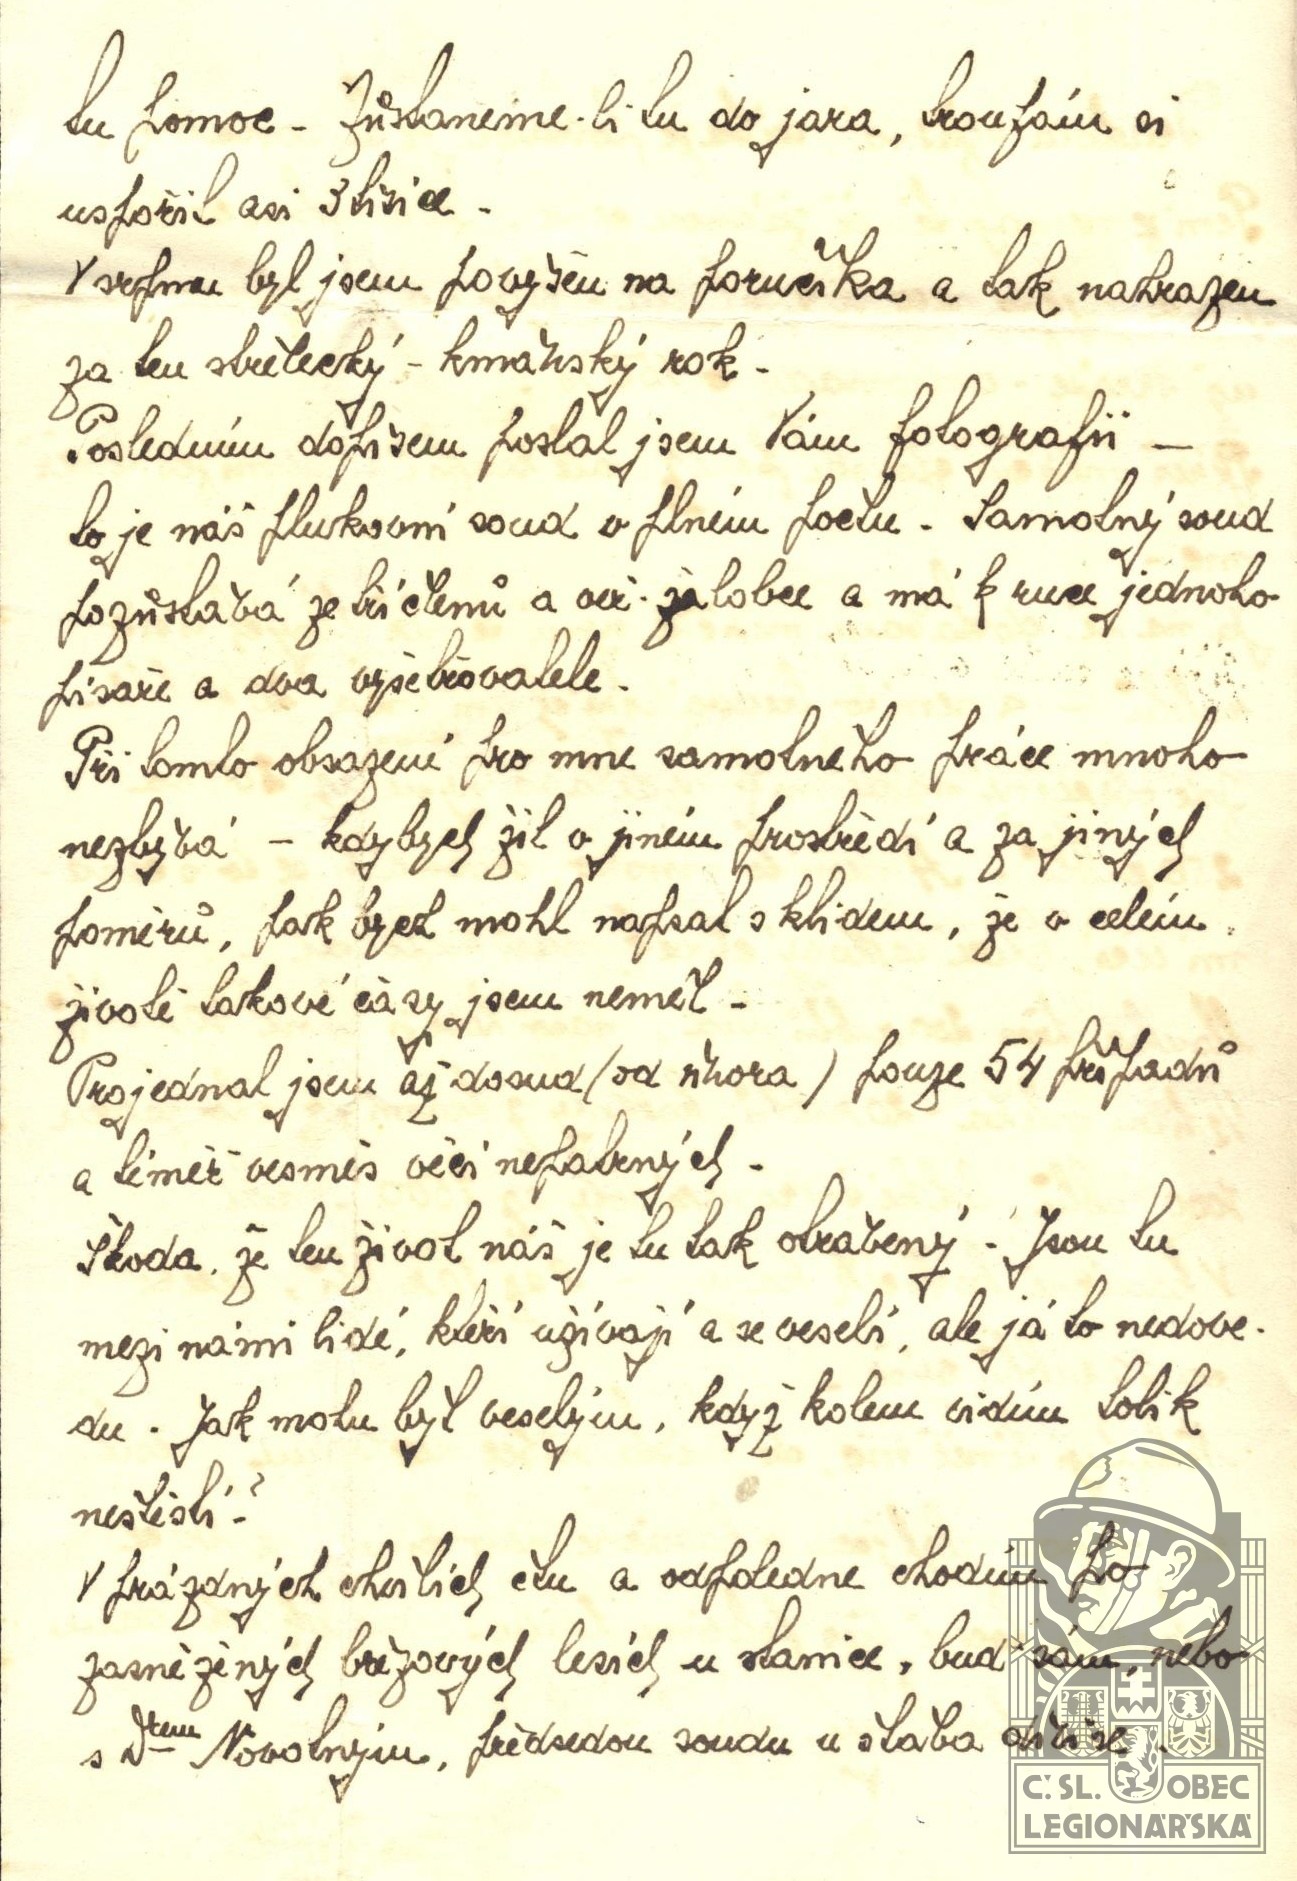 tu pomoc - Zůstaneme-li tu do jara, troufám si
uspořit asi 3 tisíce -
V srpnu byl jsem povýšen na poručíka a tak nahrazen
za ten střelecký - kmánský rok -
Posledním dopisem poslal jsem Vám fotografii —
to je náš plukovní soud v plném počtu - Samotný soud
pozůstává ze tří členů a veř. žalobce a má k ruce jednoho
písaře a dva vyšetřovatele.
Při tomto obsazení pro mne samotného práce mnoho
nezbývá - kdybych žil v jiném prostředí a za jiných
poměrů, pak bych mohl napsat s klidem, že v celém
životě takové časy jsem neměl -
Projednal jsem až dosud (od února) pouze 54 případů
a téměř vesměs věcí nepatrných -
Škoda, že ten život náš je tu tak otrávený - Jsou tu
mezi námi lidé, kteří užívají a se veselí, ale já to nedove-
du. Jak mohu být veselým, když kolem vidím tolik
neštěstí-?
V prázdných chvílích čtu a odpoledne chodím po
zasněžených březových lesích u stanice, buď sám, nebo
s Drem Novotným, předsedou soudu u štábu divise.
Č. SL. OBEC
LEGIONÁŘSKÁ